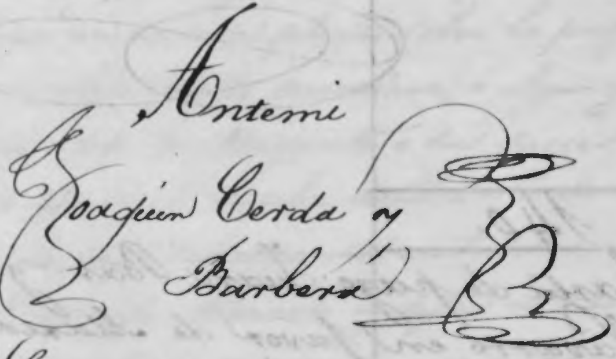 Antemi
Joaquin Cerda y
Barbera